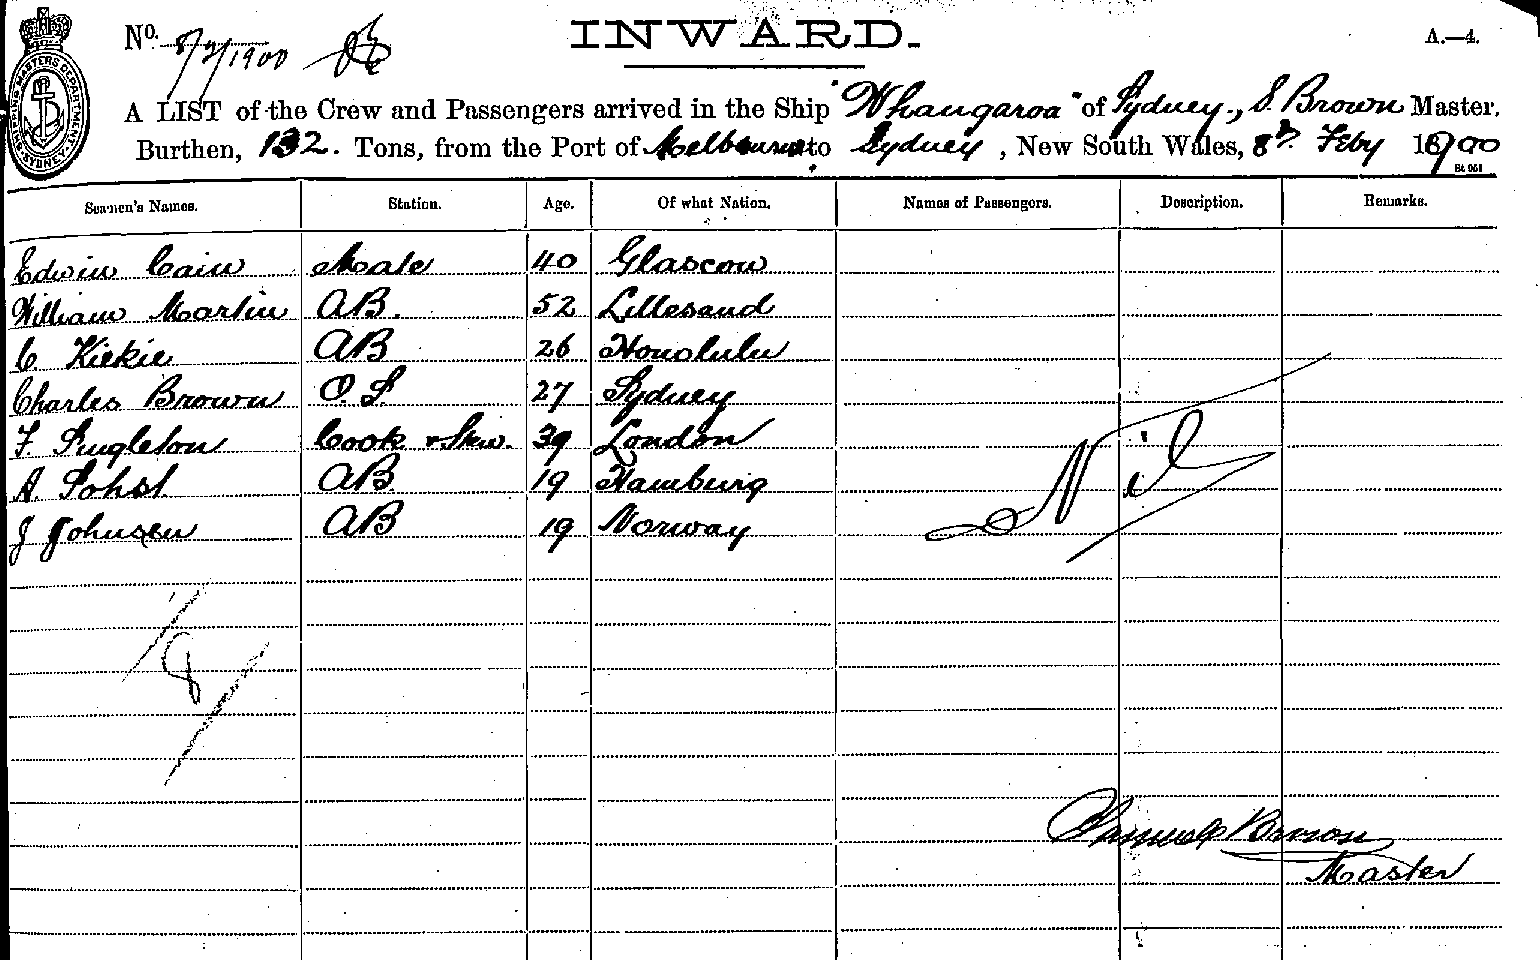 No. 8/2/1900
INWARD.
A.—4.
A LIST of the Crew and Passengers arrived in the Ship "Whangaroa" of Sydney, S. Brown Master,
Burthen, 132. Tons, from the Port of Melbourne to Sydney, New South Wales, 8th Feby 1900
St 961
SHIPPING MASTERS DEPARTMENT. SYDNEY.
Seamen's Names. Station. Age. Of what Nation. Names of Passengers. Description. Remarks.
Edwin Cain Mate 40 Glascow
William Martin AB. 52 Lillesand
C Kiekie AB 26 Honolulu
Charles Brown O.S. 27 Sydney
F. Singleton Cook & Stew. 39 London
A. Sohst AB 19 Hamburg
J Johnsen AB 19 Norway
Nil
8
Samuel Brown
Master